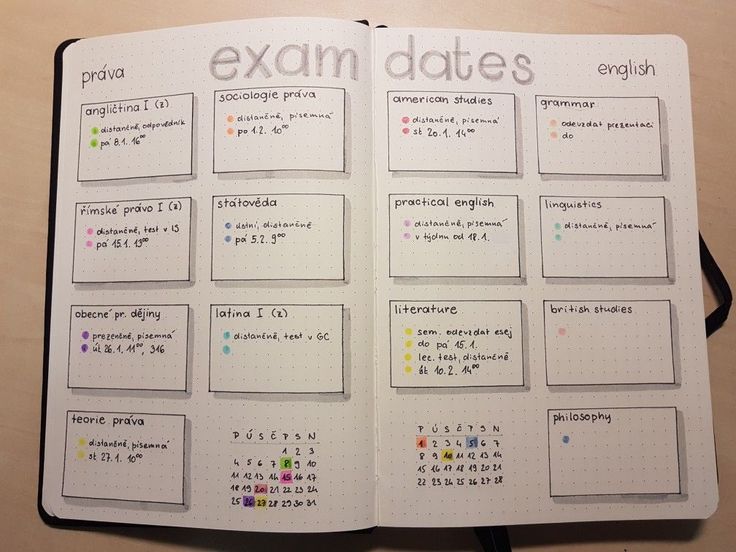 exam dates
práva
angličtina I (z)
distančně, odpovědník
pá 8.1. 16⁰⁰
sociologie práva
distančně, písemná
po 1.2. 10⁰⁰
římské právo I (z)
distančně, test v IS
pá 15.1. 13⁰⁰
státověda
ústní, distančně
pá 5.2. 9⁰⁰
obecné pr. dějiny
prezenčně, písemná
út 26.1. 11⁰⁰, 316
latina I (z)
distančně, test v GC
teorie práva
distančně, písemná
st 27.1. 10⁰⁰
P Ú S Č P S N
1 2 3
4 5 6 7 8 9 10
11 12 13 14 15 16 17
18 19 20 21 22 23 24
25 26 27 28 29 30 31
english
american studies
distančně, písemná
st 20.1. 14⁰⁰
grammar
odevzdat prezentaci
do
practical english
distančně, písemná
v týdnu od 18.1.
linguistics
distančně, písemná
literature
sem. odevzdat esej
do pá 15.1.
lec. test, distančně
st 10.2. 14⁰⁰
british studies
philosophy
P Ú S Č P S N
1 2 3 4 5 6 7
8 9 10 11 12 13 14
15 16 17 18 19 20 21
22 23 24 25 26 27 28